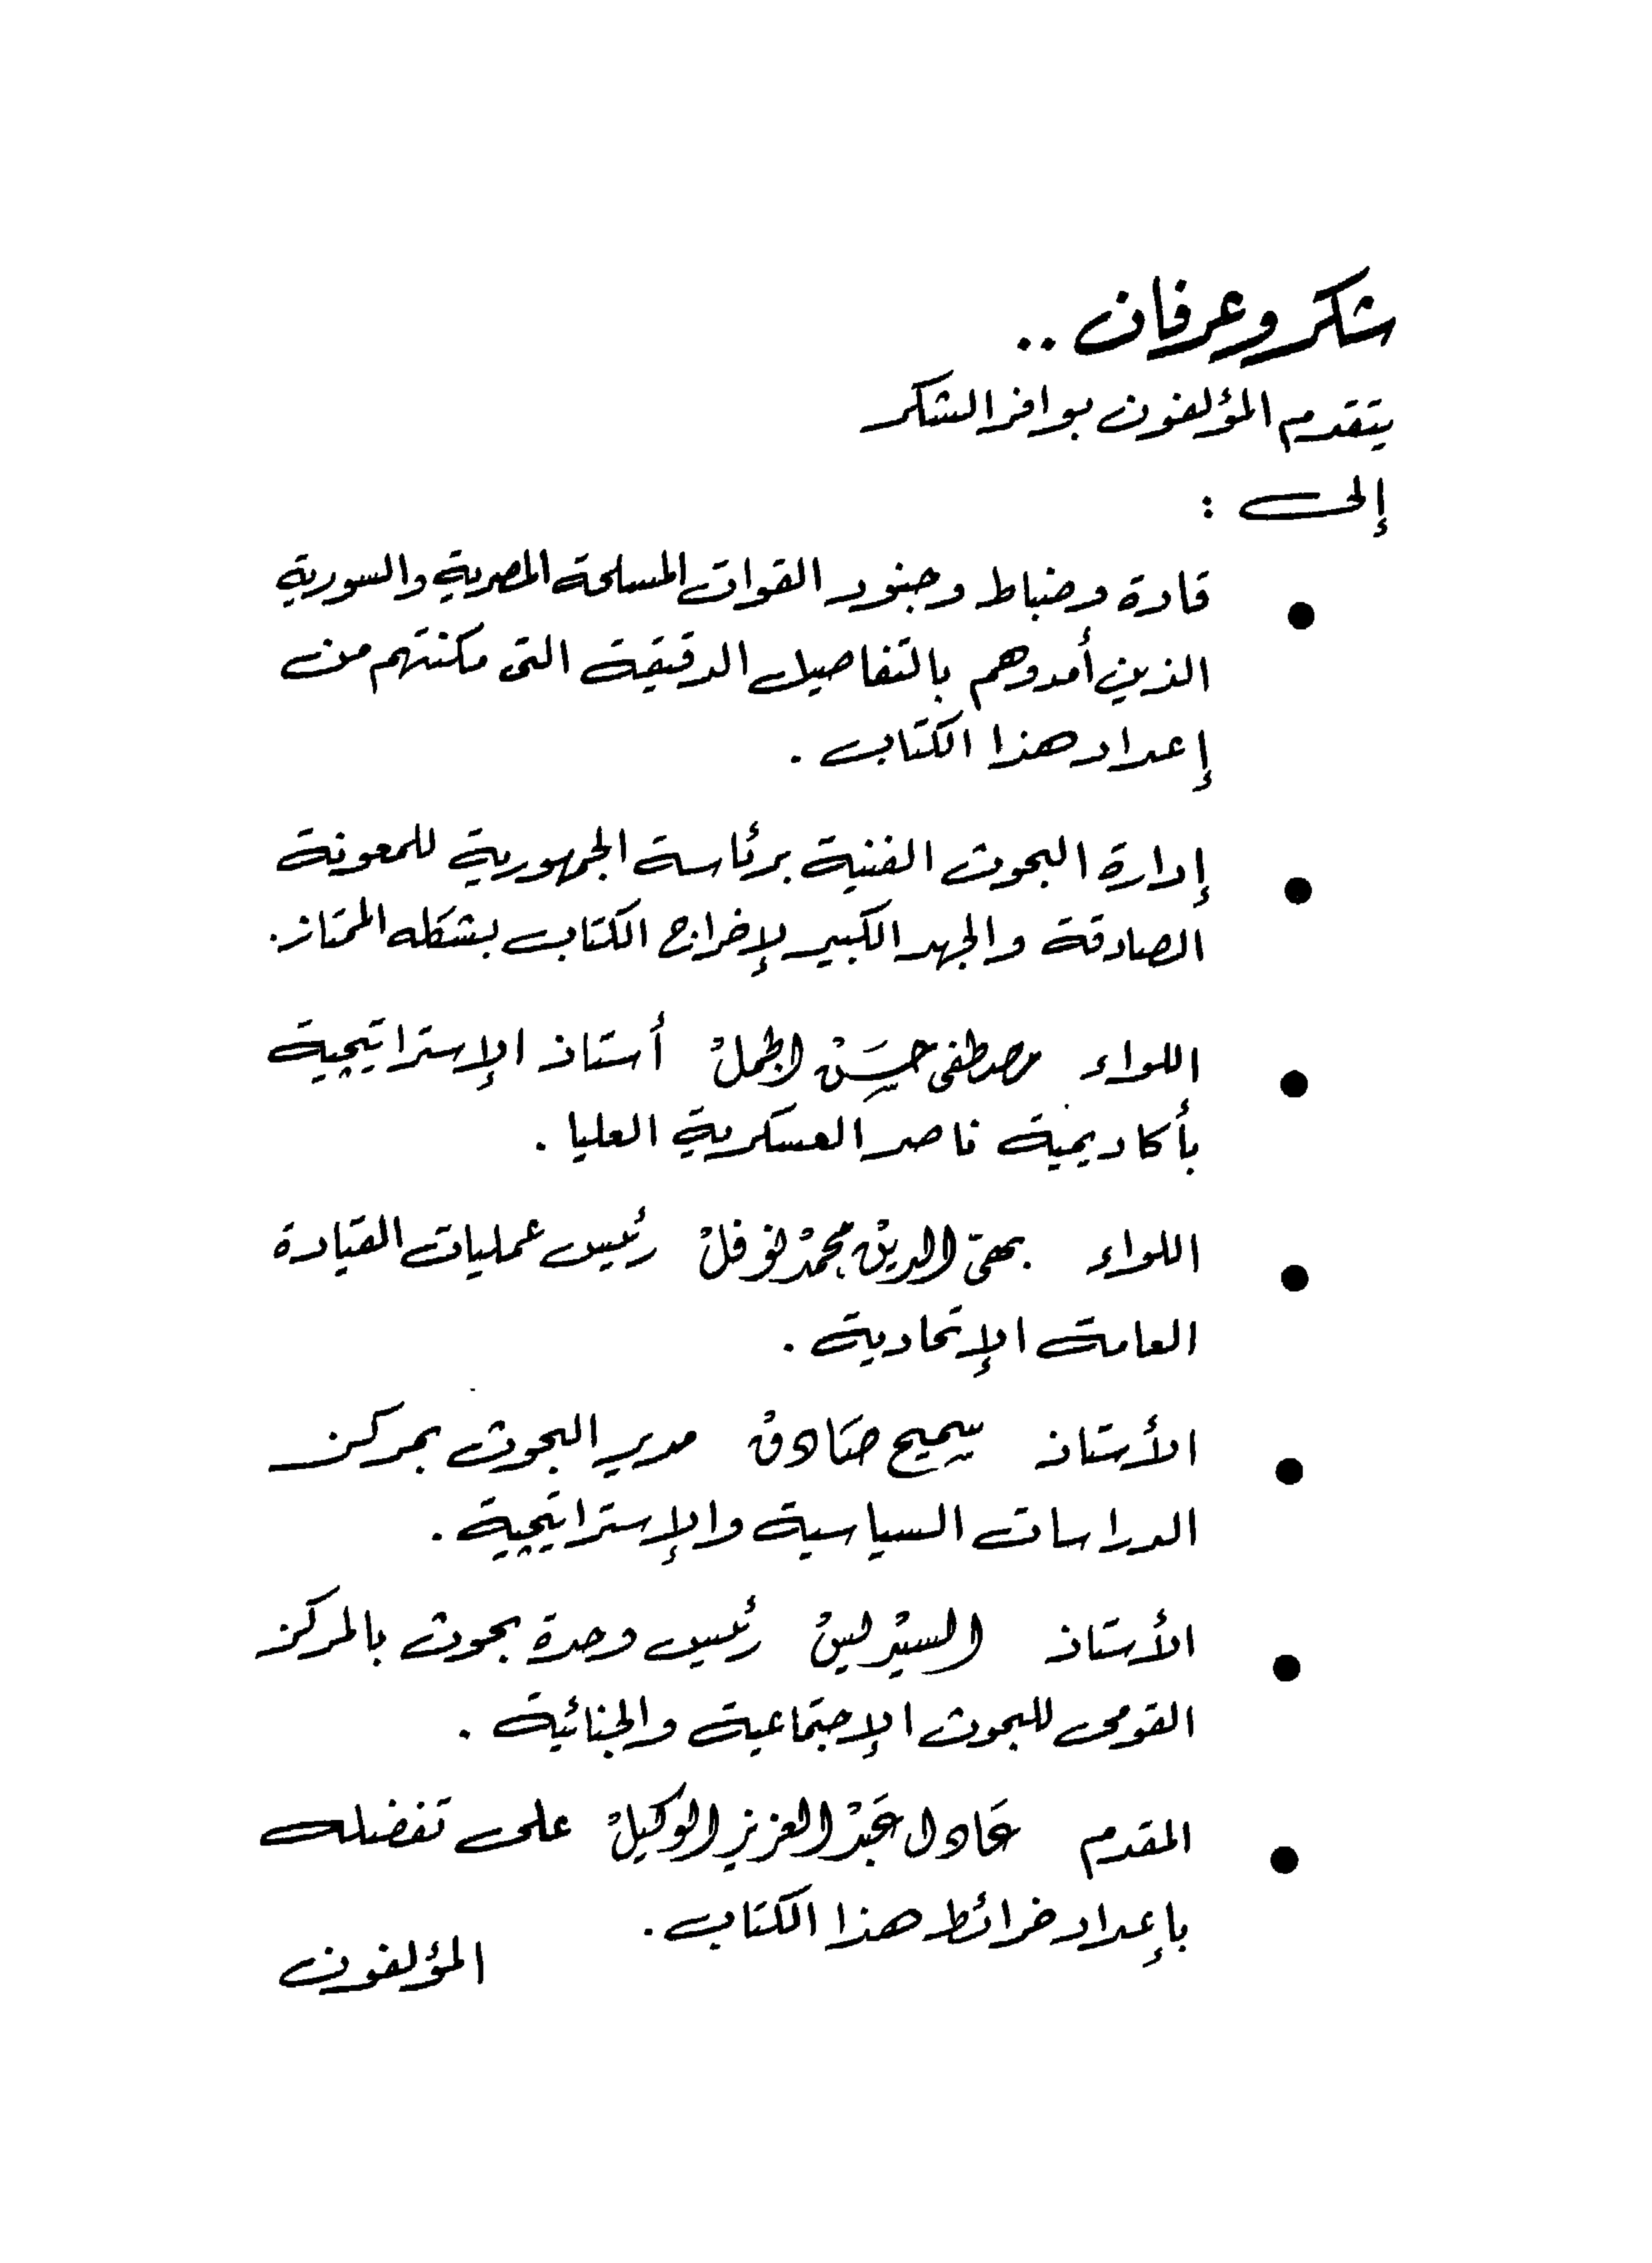 شكر وعرفان ..
يتقدم المؤلفون بوافر الشكر
إلى :
● قادة وضباط وجنود القوات المسلحة المصرية والسورية
الذين أمدوهم بالتفاصيل الدقيقة التى مكنتهم من
إعداد هذا الكتاب .
● إدارة البحوث الفنية برئاسة الجمهورية للمعونة
الصادقة والجهد الكبير لإخراج الكتاب بشكله الممتاز.
● اللواء مصطفى حسن الجمل أستاذ الإستراتيجية
بأكاديمية ناصر العسكرية العليا .
● اللواء بهى الدين محمد نوفل رئيس عمليات القيادة
العامة الإتحادية .
● الأستاذ سميح صادق مدير البحوث بمركز
الدراسات السياسية والإستراتيجية .
● الأستاذ السيد يس رئيس وحدة بحوث بالمركز
القومى للبحوث الإجتماعية والجنائية .
● المقدم عادل عبد العزيز الوكيل على تفضله
بإعداد خرائط هذا الكتاب .
المؤلفون